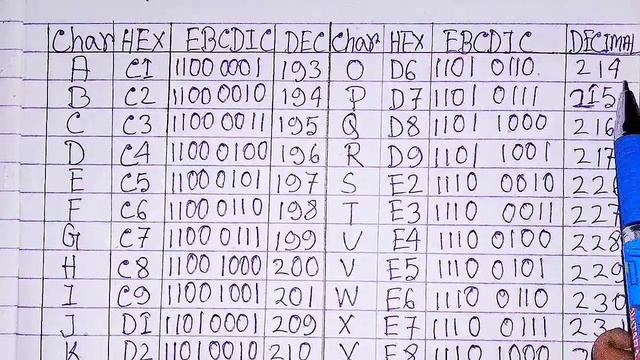 Char HEX EBCDIC DEC Char HEX EBCDIC DECIMAL
A C1 1100 0001 193 O D6 1101 0110 214
B C2 1100 0010 194 P D7 1101 0111 215
C C3 1100 0011 195 Q D8 1101 1000 216
D C4 1100 0100 196 R D9 1101 1001 217
E C5 1100 0101 197 S E2 1110 0010 226
F C6 1100 0110 198 T E3 1110 0011 227
G C7 1100 0111 199 U E4 1110 0100 228
H C8 1100 1000 200 V E5 1110 0101 229
I C9 1100 1001 201 W E6 1110 0110 230
J D1 11010001 209 X E7 1110 0111
K D2 11010010 210 Y E8 1110 1000